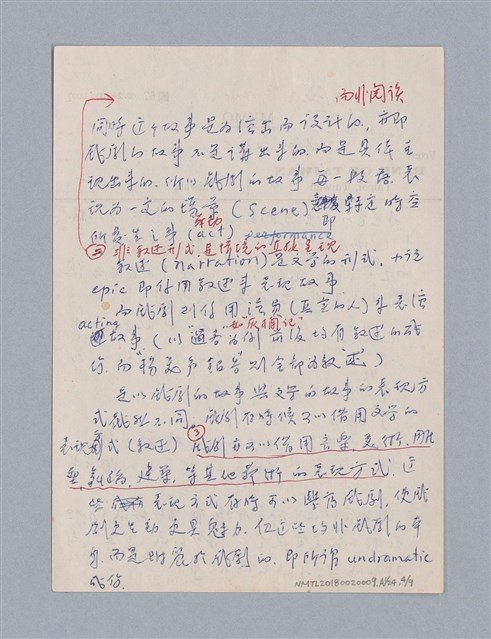 而非閱讀
同時這个故事是为演出而設計的，亦即
戲劇的故事不是講出來的，而是具体呈
現出來的，所以戲劇的故事每一段落表
現为一定的場景（Scene）即特定時空
所發生之事（act）performance
㊁非敘述形式，是情境的直接呈現
敘述（narration）是文学的形式，小說
epic 即使用敘述來表現故事
而戲劇則使用演員（真定的人）來表演
acting
故事。（以"通
"如灰闌記"
前後均有敘述的成
份，而
則全部为敘述）
是以戲劇的故事與文学的故事的表現方
式截然不同。戲劇有時候可以借用文学的
表現形式（敘述）③戲劇亦可以借用音樂、美術、雕
塑、舞蹈、建築、等其他藝術的表現方式。这
些表現方式有時可以豐富戲劇，使戲
劇更生動更具魅力，但這些均非戲劇的本
身，而是附麗於戲劇的，即所謂 undramatic
成份。
NMTL20180020009, A/54, 4/9